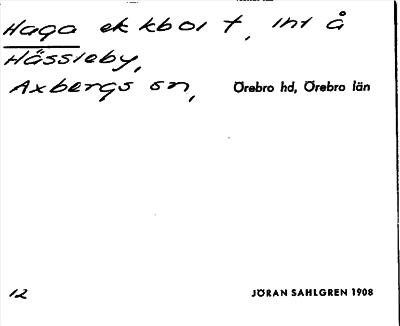 Haga ek kbol t, inl å
Hässleby,
Axbergs sn, Örebro hd, Örebro län
12 JÖRAN SAHLGREN 1908